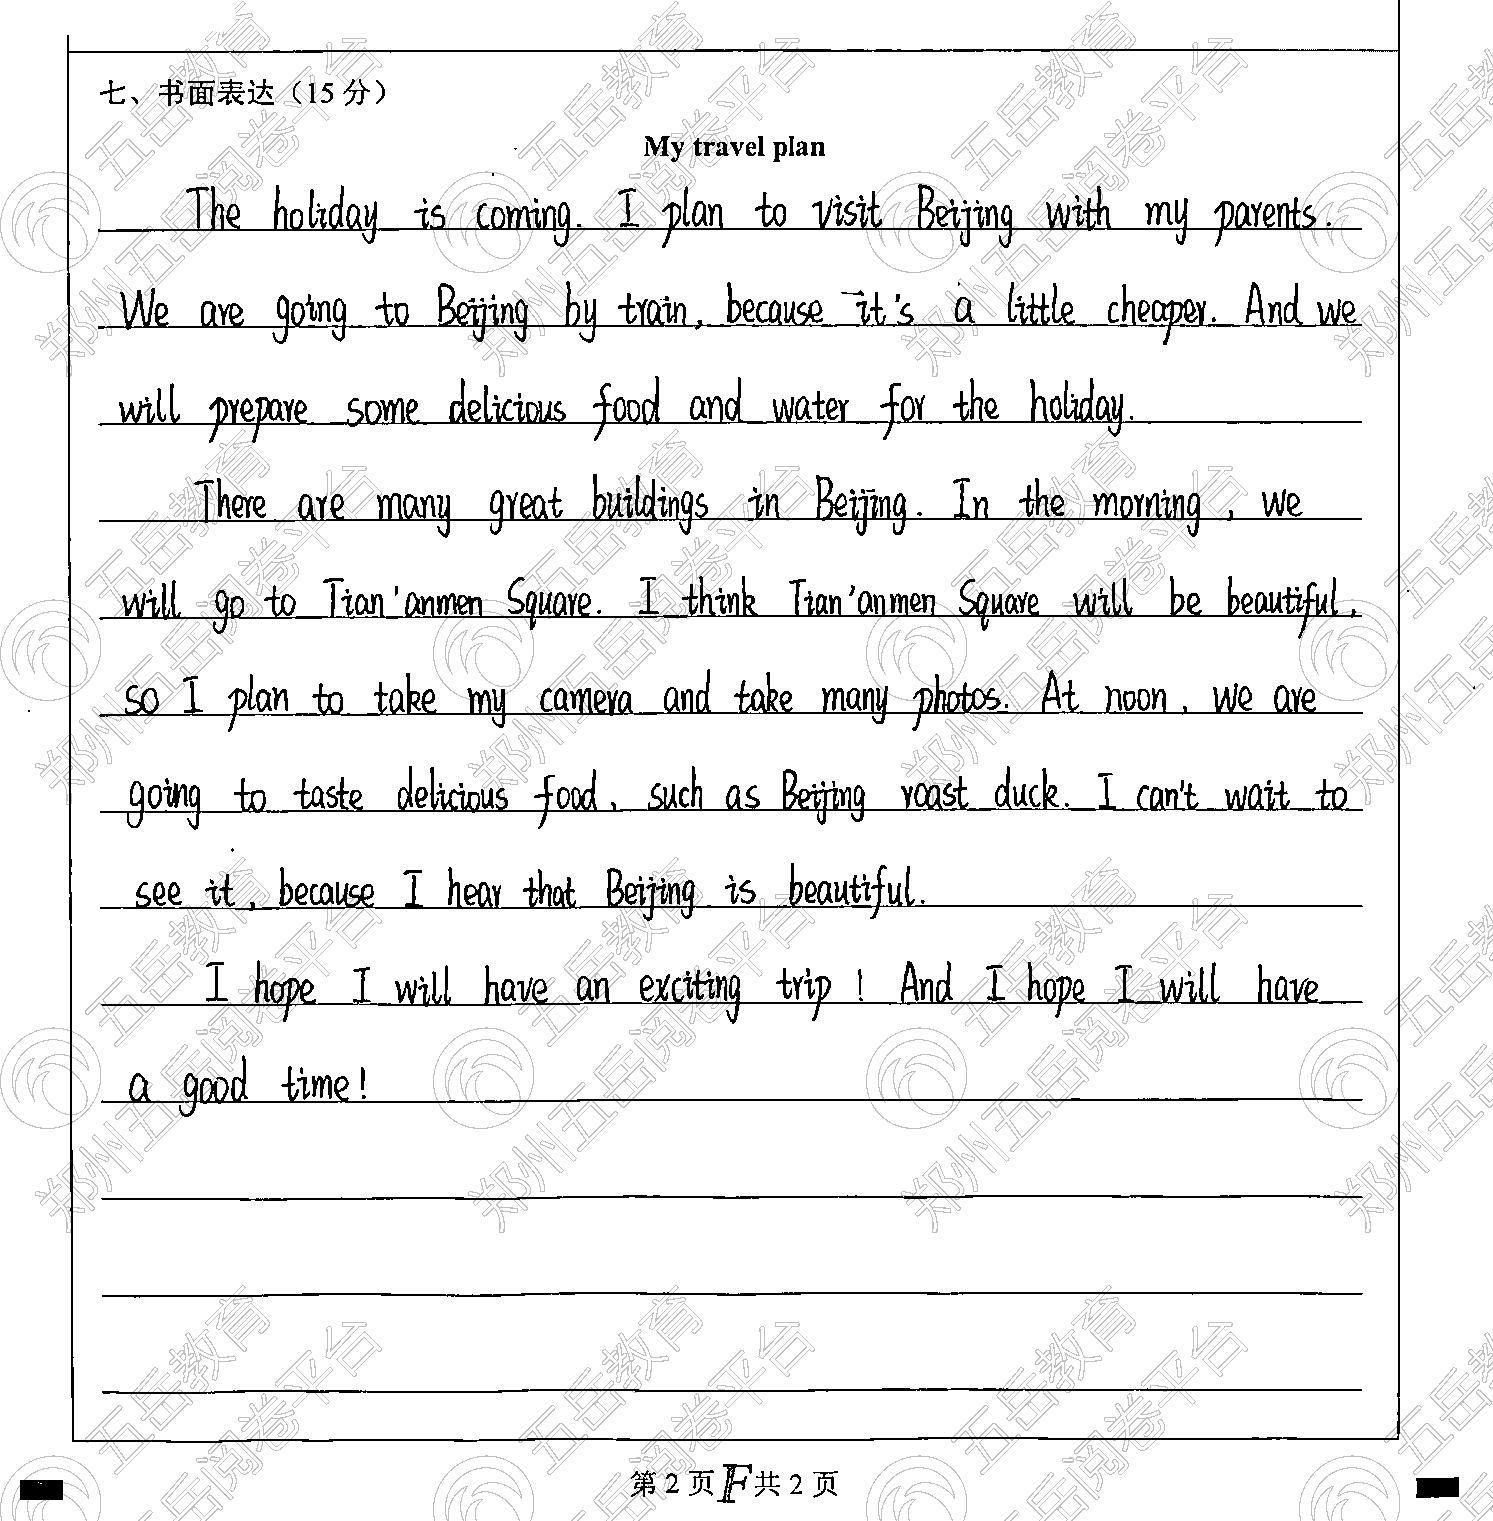 七、书面表达（15 分）
My travel plan
The holiday is coming. I plan to visit Beijing with my parents.
We are going to Beijing by train, because it's a little cheaper. And we
will prepare some delicious food and water for the holiday.
There are many great buildings in Beijing. In the morning, we
will go to Tian'anmen Square. I think Tian'anmen Square will be beautiful,
so I plan to take my camera and take many photos. At noon, we are
going to taste delicious food, such as Beijing roast duck. I can't wait to
see it, because I hear that Beijing is beautiful.
I hope I will have an exciting trip! And I hope I will have
a good time!
第 2 页 F 共 2 页
五岳教育
郑州五岳阅卷平台